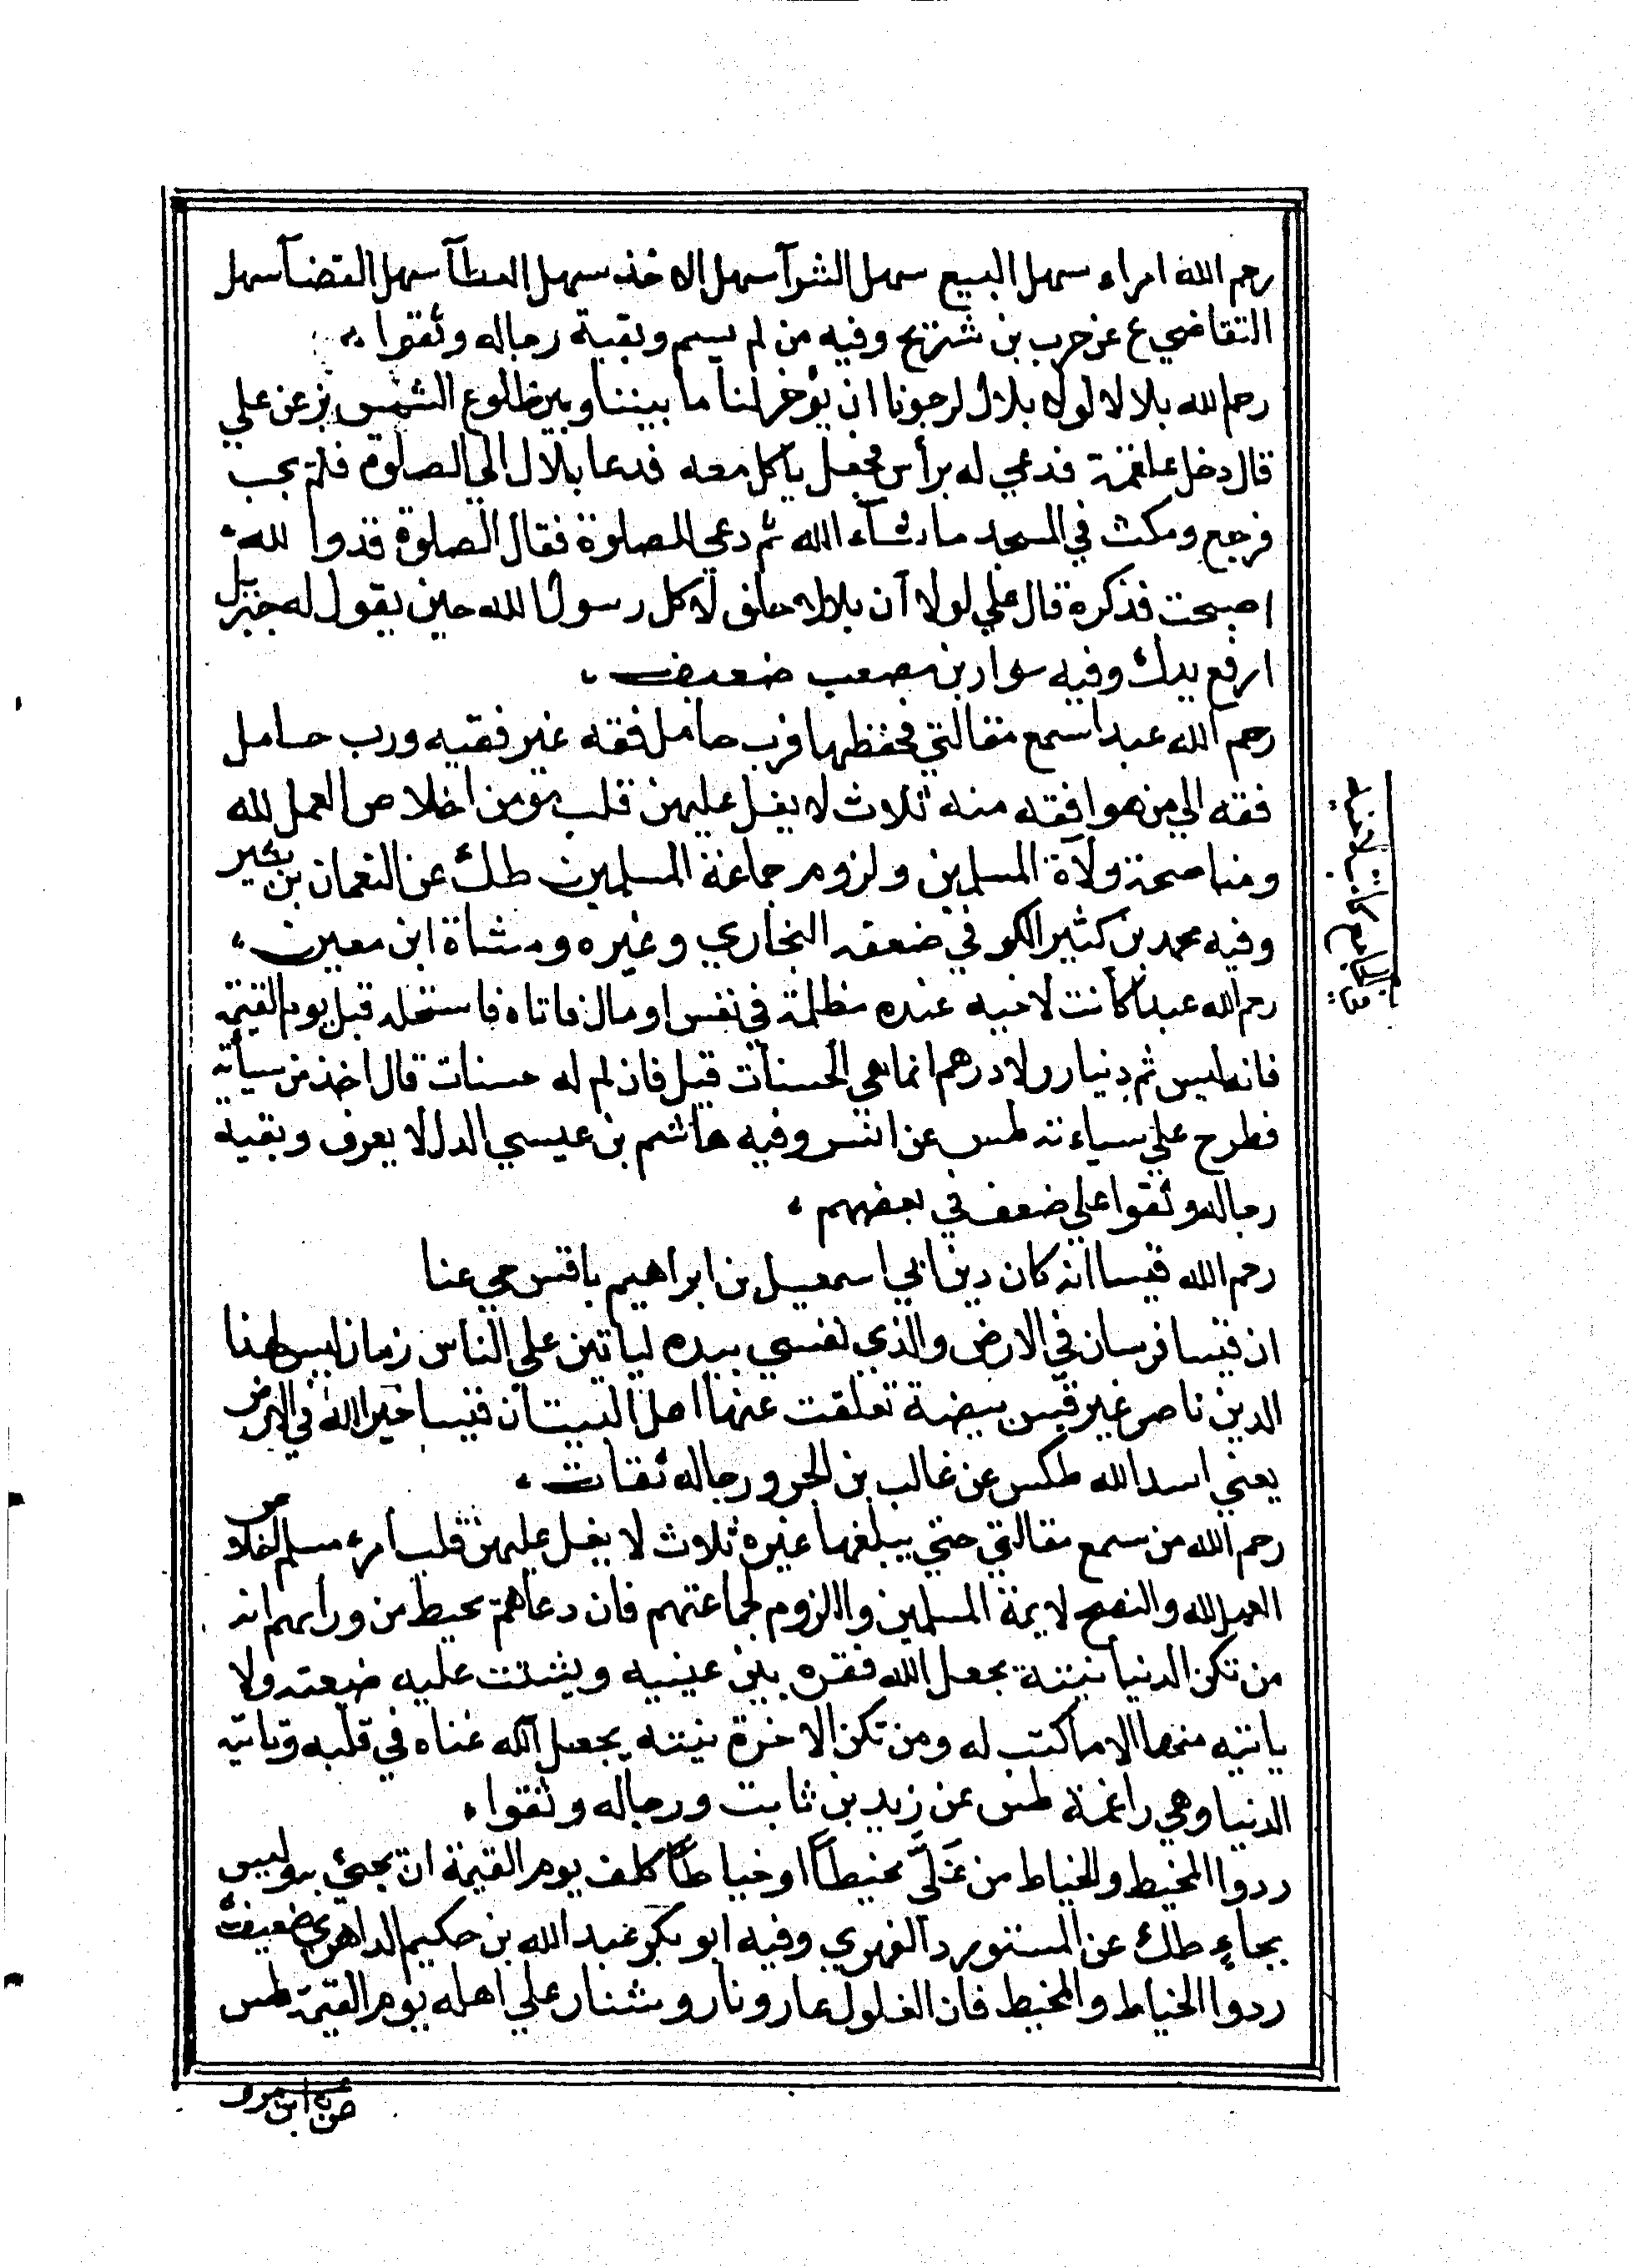 رحم الله امراء سهل البيع سهل الشرآ سهل الاخذ سهل العطآ سهل القضآ سهل
التقاضي ع عن حرب بن شريح وفيه من لم يسم وبقية رجاله وثقوا
رحم الله بلالا لولا بلال لرجونا ان يؤخر لنا ما بيننا وبين طلوع الشمس بز عن علي
قال دخل علقمة فدعي له برأس فجعل ياكل معه فدعا بلال الي الصلوة فلم يجب
فرجع ومكث في المسجد ماشآء الله ثم دعي للصلوة فقال الصلوة قد والله
اصبحت فذكره قال علي لولا آن بلالا حلف لاكل رسول الله حين يقول له جبريل
ارفع يدك وفيه سوار بن مصعب ضعيف
رحم الله عبدا سمع مقالتي فحفظها فرب حامل فقه غير فقيه ورب حامل
فقه الي من هو افقه منه ثلاث لا يغل عليهن قلب مؤمن اخلاص العمل لله
ومناصحة ولآة المسلمين ولزوم جماعة المسلمين طك عن النعمان بن بشير
وفيه محمد بن كثير الكوفي ضعفه البخاري وغيره ومشاة ابن معين
رحم الله عبدا كانت لاخيه عنده مظلمة في نفس او مال فاتاه فاستحله قبل يوم القيمة
فانه ليس ثم دينار ولا درهم انما هي الحسنات قيل فان لم له حسنات قال اخذ من سيأته
فطرح علي سياءته طس عن انس وفيه هاشم بن عيسي الدل لا يعرف وبقية
رجاله وثقوا علي ضعف في بعضهم
رحم الله قيسا انه كان دين ابي اسمعيل بن ابراهيم ياقس حي عنا
ان قيسا فرسان في الارض والذي نفسي بيده لياتين علي الناس زمان ليس لهذا
الدين ناصر غير قيس بيضة تعلقت عنها اهل البيت ان قيسا خير الله في الارض
يعني اسد الله طكس عن غالب بن الحر ورجاله ثقات
رحم الله من سمع مقالتي حتي يبلغها غيره ثلاث لا يغل عليهن قلب امرء مسلم اخلاص
العمل لله والنصح لايمة المسلمين والالزوم لجماعتهم فان دعاهم يحيط من ورايهم انه
من تكن الدنيا نيته يجعل الله فقره بين عينيه ويشتت عليه ضيعته ولا
ياتيه منها الا ما كتب له ومن تكن الاخرة نيته يجعل الله غناه في قلبه وتاتيه
الدنيا وهي راغمة طس عن زيد بن ثابت ورجاله وثقوا
ردوا المخيط والخياط من غلّ مخيطا او خياطا كلف يوم القيمة ان يجئ به وليس
بجاء طك عن المستورد الفهري وفيه ابو بكر عبد الله بن حكيم الداهري ضعيف
ردوا الخياط والمخيط فان الغلول عار ونار وشنار علي اهله يوم القيمة طس